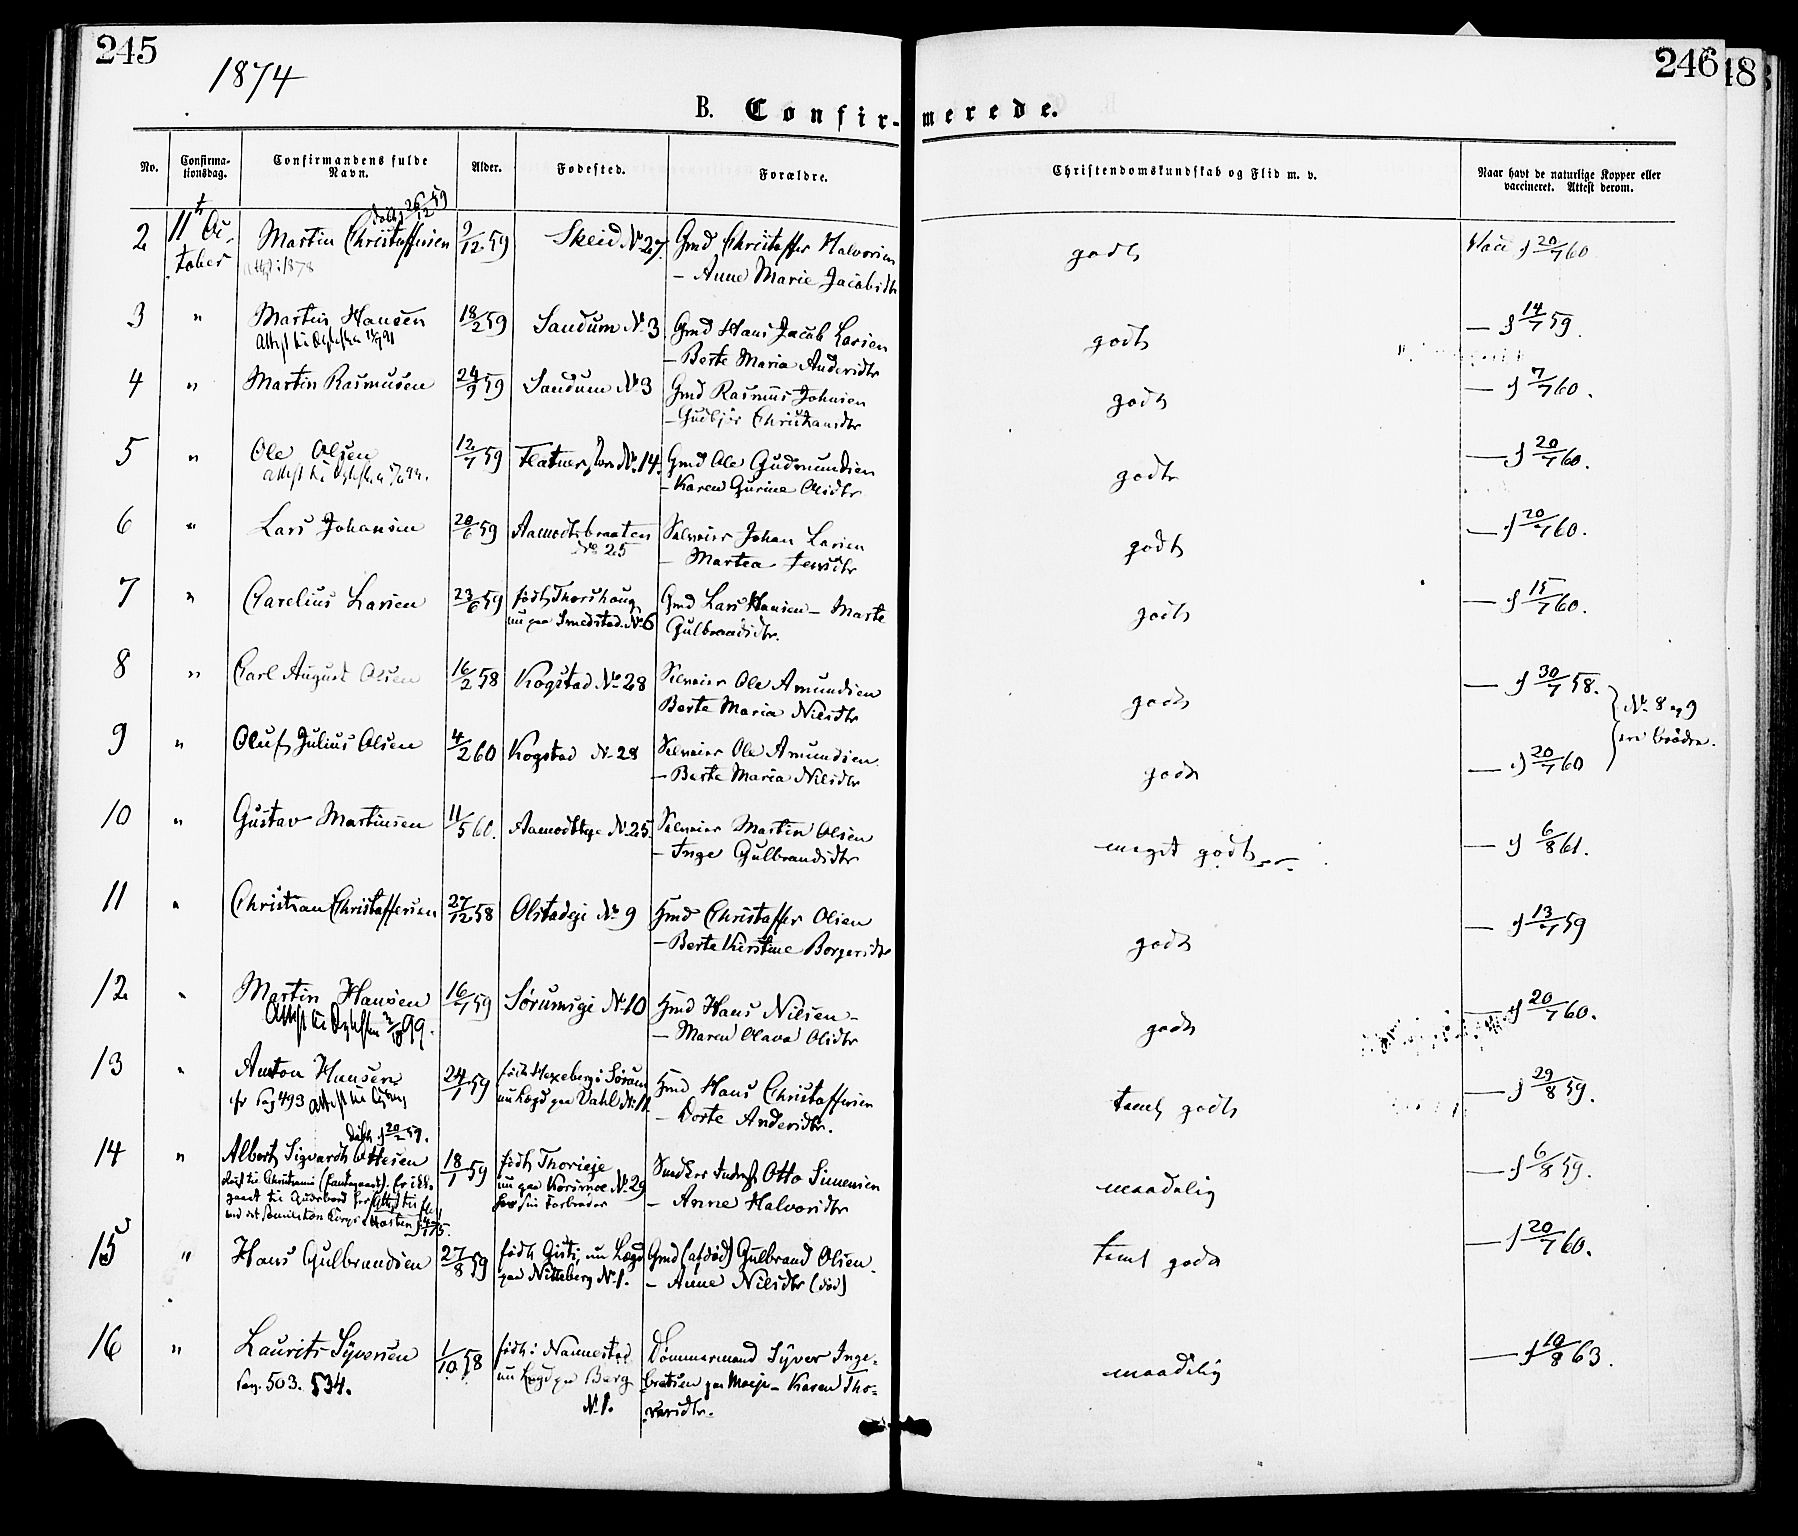 245
1874
B. Confir-
No.
Confirma-
tionsdag.
Confirmandens fulde
Navn.
Alder.
Fodested.
Forældre.
2 11te Oc- Martin Christoffersen 9/12 59 Skeid No 27. Gmd Christoffer Halvorsen
døbt 26/12 59
tober
attest 1878
– Anne Marie Jacobsdtr
3 " Martin Hansen 18/2 59 Saudum No 3 Gmd Hans Jacob Larsen
– Berte Maria Andersdtr
4 " Martin Rasmusen 24/9 59 Saudum No 3 Gmd Rasmus Johnsen
5 " Ole Olsen 12/7 59 No 14. Gmd Ole Gudmundsen
– Karen Gurine Olsdtr
6 " Lars Johansen 20/6 59 Aamodtsbraaten Selveier Johan Larsen
No 25
– Martea Jensdtr
7 " Carelius Larsen 23/6 59 født Thorshaug Gmd Lars Hansen – Marte
nu paa Smedstad No 6 Gulbrandsdtr.
8 " Carl August Olsen 16/2 58 Kogstad No 28 Selveier Ole Amundsen
Berte Maria Nilsdtr
9 " Oluf Julius Olsen 4/2 60 Kogstad No 28 Selveier Ole Amundsen.
– Berte Maria Nilsdtr
10 " Gustav Martinsen 11/5 60. No 25. Selveier Martin Olsen
– Inge Gulbrandsdtr
11 " Christian Christoffersen 27/12 58 Olstadeje No 9 Hmd Christoffer Olsen
– Berte Kirstine Borgersdtr
12 " Martin Hansen 16/7 59 Sørumseje No 10 Hmd Hans Nilsen –
99.
– Maren Olava Olsdtr
13 " Anton Hansen 24/1 59 født Hexeberg i Sørum Hmd Hans Christoffersen
cfr Pag 493 nu Lægd paa Dahl No 11.
– Dorte Andersdtr.
Døbt d 20/2 59.
14 " Albert Sigvardt Ottesen 18/1 59 født Thorseje Otto Simensen
nu paa Korsmoe No 29
hos sin Farbroder
– Anne Halvorsdtr
15 " Hans Gulbrandsen 27/8 59 født Gisti, nu Lægd Gmd (afdød) Gulbrand Olsen.
paa Nitteberg No 1. – Anne Nilsdtr (død)
16 " Laurits Syversen 1/10 58 født i Nannestad Tømmermand Syver Inge-
Pag. 503. 534. nu Lægd paa Berg bretsen paa Moeje – Karen Tho-
No 1. varsdtr.
246
48
merede.
Christendomskundskab og Flid m. v.
Naar havt de naturlige Kopper eller
vaccineret. Attest derom.
godt Vacc d 20/7 60
godt — d 14/7 59.
godt — d 7/7 60.
godt — d 20/7 60.
godt — d 20/7 60.
godt — d 15/7 60.
godt — d 30/7 58.
No 8 og 9
ere Brødre.
godt — d 20/7 60
meget godt — d 6/8 61.
godt — d 13/7 59
godt — d 20/7 60.
temt godt — d 29/8 59.
maadelig — d 6/8 59.
temt godt — d 20/7 60.
maadelig — d 19/8 63.